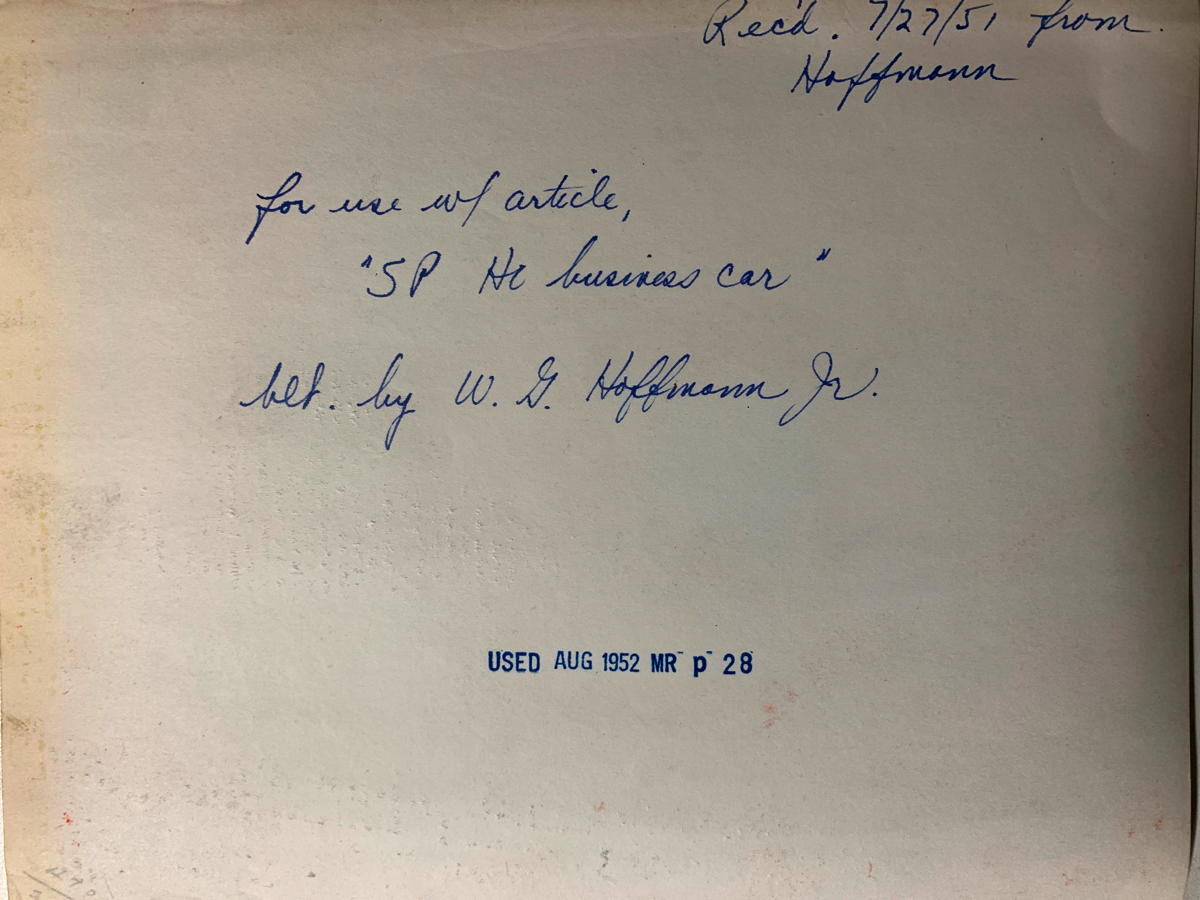 Rec'd. 7/27/51 from
Hoffmann
for use w/ article,
"SP HO business car"
blt. by W. G. Hoffmann Jr.
USED AUG 1952 MR p 28